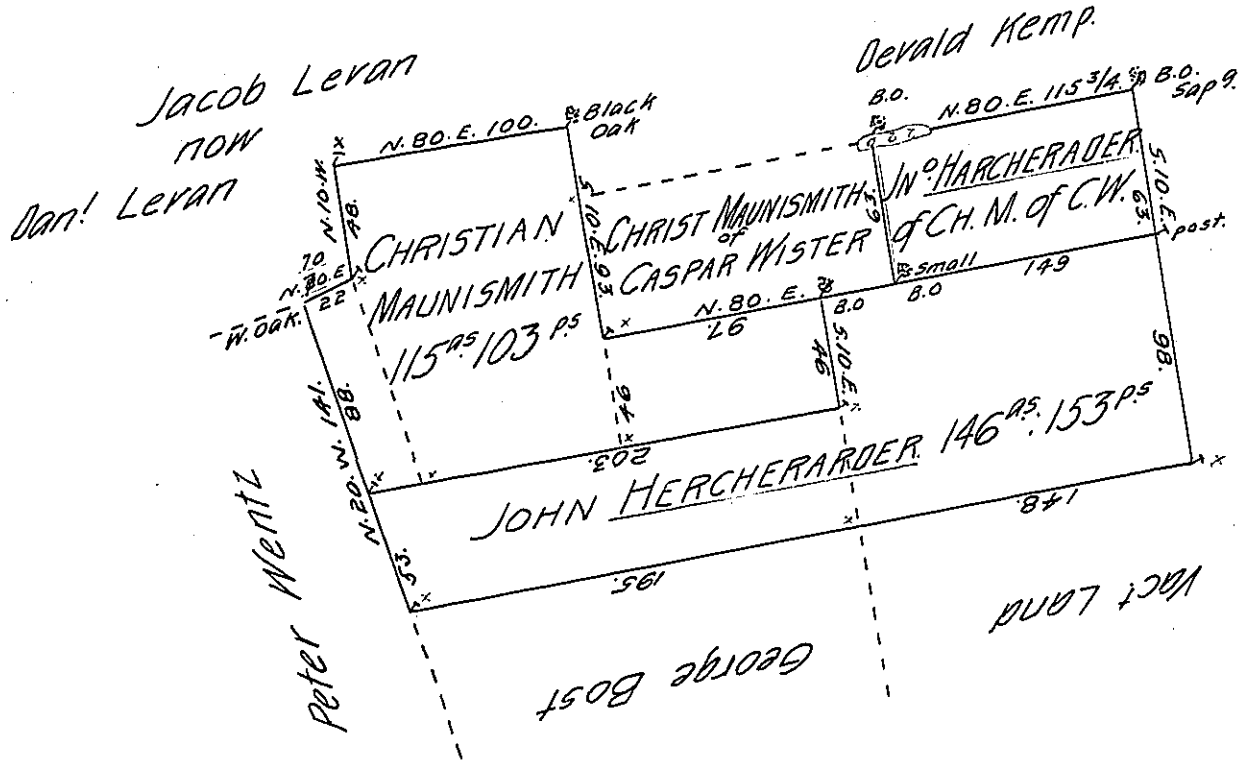 Jacob Levan
now
Danl Levan
Devald Kemp.
N. 80. E. 100.
Black
Oak
B.O.
N. 80. E. 115 3/4.
B.O.
Sap g.
N. 10. W.
48.
70
N. 80. E
22
W. Oak.
CHRISTIAN
MAUNISMITH
115as 103 ps
S. 10. E. 93.
CHRIST MAUNISMITH
of
CASPAR WISTER
63
Jno HARCHERADER
of CH. M. of C.W.
S. 10. E.
63.
post.
Small
B.O
149
N. 80. E.
97
B.O
S. 10. E.
46
98.
N. 20. W. 141.
88.
46
203.
JOHN HERCHERARDER 146as. 153ps
53.
195.
148.
Peter Wentz
George Bost
Vact Land